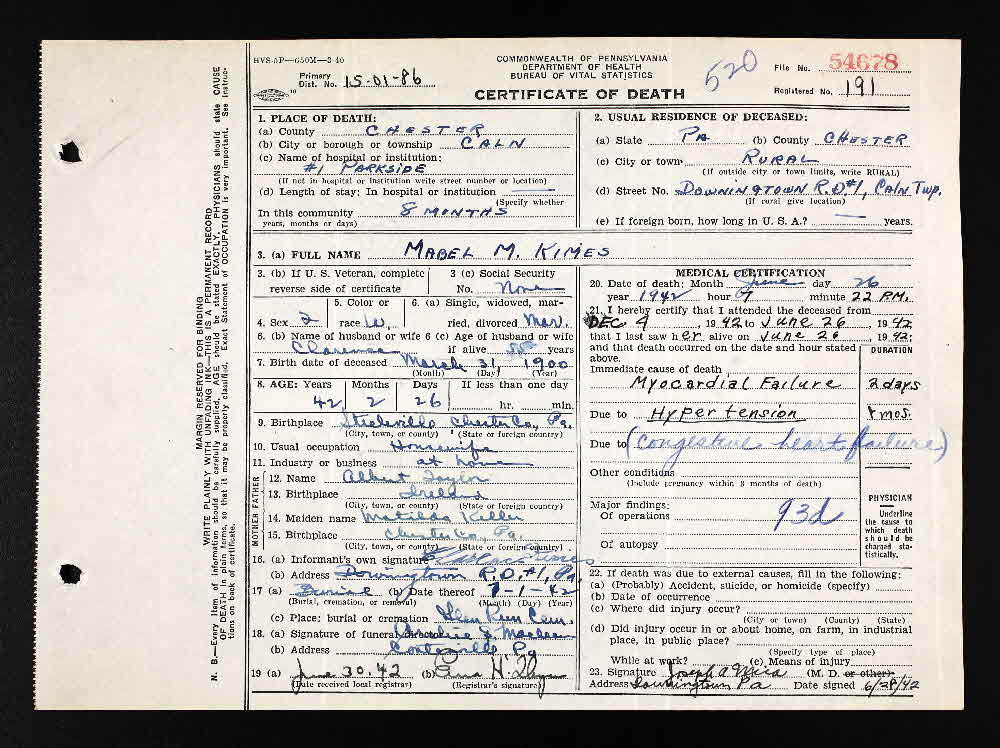 HVS-5P—650M—3-40
COMMONWEALTH OF PENNSYLVANIA
DEPARTMENT OF HEALTH
BUREAU OF VITAL STATISTICS
CERTIFICATE OF DEATH
520
File No. 54678
Primary Dist. No. 15-01-86
Registered No. 191
MARGIN RESERVED FOR BINDING
WRITE PLAINLY WITH UNFADING INK—THIS IS A PERMANENT RECORD
N. B.—Every item of information should be carefully supplied. AGE should be stated EXACTLY. PHYSICIANS should state CAUSE
OF DEATH in plain terms, so that it may be properly classified. Exact Statement of OCCUPATION is very important. See instruc-
tions on back of certificate.
1. PLACE OF DEATH:
(a) County CHESTER
(b) City or borough or township CALN
(c) Name of hospital or institution:
#1 PARKSIDE
(If not in hospital or institution write street number or location)
(d) Length of stay: In hospital or institution —
(Specify whether
In this community 8 MONTHS
years, months or days)
2. USUAL RESIDENCE OF DECEASED:
(a) State PA (b) County CHESTER
(c) City or town RURAL
(If outside city or town limits, write RURAL)
(d) Street No. DOWNINGTOWN R.D#1, CALN TWP.
(If rural give location)
(e) If foreign born, how long in U. S. A.? — years.
3. (a) FULL NAME MABEL M. KIMES
3. (b) If U. S. Veteran, complete reverse side of certificate
3 (c) Social Security No. None
4. Sex
5. Color or race W.
6. (a) Single, widowed, married, divorced Mar.
6. (b) Name of husband or wife Clarence
6 (c) Age of husband or wife if alive years
7. Birth date of deceased March 31, 1900
(Month) (Day) (Year)
8. AGE: Years Months Days If less than one day
42 2 26 hr. min.
9. Birthplace Steeleville Chester Co., Pa.
(City, town, or county) (State or foreign country)
10. Usual occupation Housewife
11. Industry or business at home
FATHER
12. Name Albert Taylor
13. Birthplace Ireland
(City, town, or county) (State or foreign country)
MOTHER
14. Maiden name Matilda Keller
15. Birthplace Chester Co., Pa.
(City, town, or county) (State or foreign country)
16. (a) Informant's own signature Kimes
(b) Address Downingtown R.D.#1, Pa.
17 (a) Burial (b) Date thereof 7-1-42
(Burial, cremation, or removal) (Month) (Day) (Year)
(c) Place; burial or cremation Glen Run Cem.
18. (a) Signature of funeral director
(b) Address Coatesville Pa
19 (a) June 30.42 (b)
(Date received local registrar) (Registrar's signature)
MEDICAL CERTIFICATION
20. Date of death: Month June day 26
year 1942 hour 7 minute 22 P.M.
21. I hereby certify that I attended the deceased from
DEC 4, 1942 to June 26, 1942;
that I last saw her alive on June 26, 1942;
and that death occurred on the date and hour stated above.
DURATION
Immediate cause of death
Myocardial Failure 2 days
Due to Hypertension mos.
Due to (congestive heart failure)
Other conditions
(Include pregnancy within 3 months of death)
Major findings:
Of operations 93d
Of autopsy
PHYSICIAN
Underline the cause to which death should be charged statistically.
22. If death was due to external causes, fill in the following:
(a) (Probably) Accident, suicide, or homicide (specify)
(b) Date of occurrence
(c) Where did injury occur?
(City or town) (County) (State)
(d) Did injury occur in or about home, on farm, in industrial
place, in public place?
(Specify type of place)
While at work? (e) Means of injury
23. Signature Joseph A (M. D. or other)
Address Downingtown Pa Date signed 6/28/42